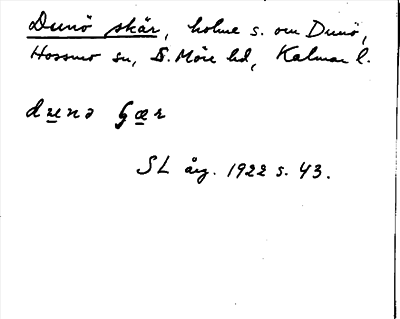 Dunö skär, holme s. om Dunö,
Hossmo sn, S. Möre hd, Kalmar l.
dunə ʃær
SL årg. 1922 s. 43.